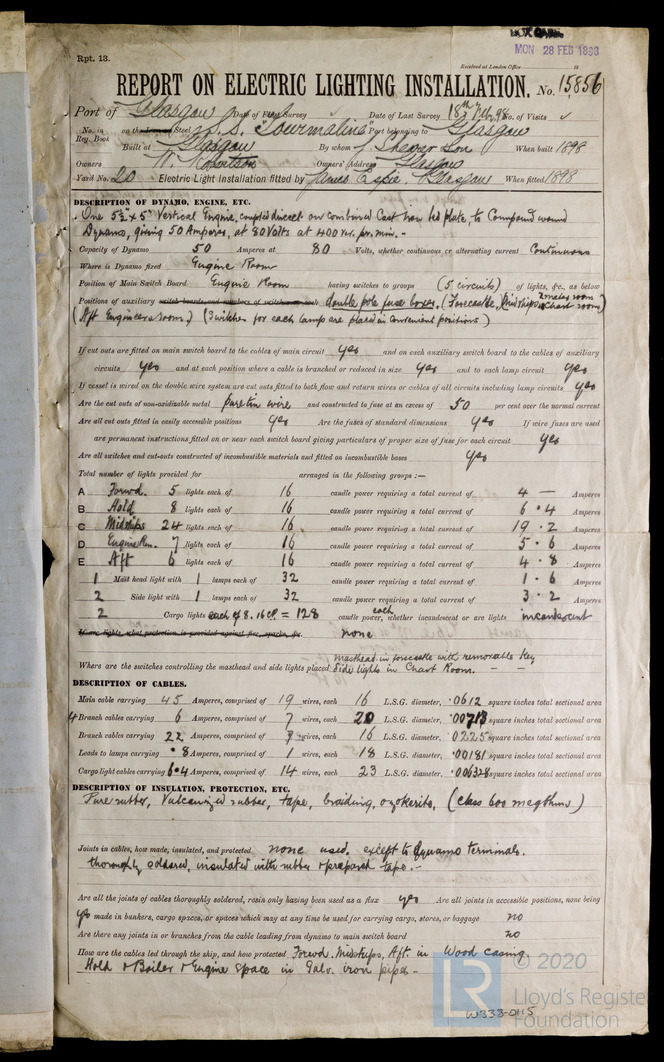 Rpt. 13.
MON 28 FEB 1898
Received at London Office 18
REPORT ON ELECTRIC LIGHTING INSTALLATION. No. 15856
Port of Glasgow Date of First Survey Date of Last Survey 18th Feb. 98 No. of Visits
No. in on the Iron or Steel S.S. "Tourmaline" Port belonging to Glasgow
Reg. Book
Built at Glasgow By whom J. Shearer & Son When built 1898
Owners W. Robertson Owners' Address Glasgow
Yard No. 20 Electric Light Installation fitted by James Espie. Glasgow When fitted 1898
DESCRIPTION OF DYNAMO, ENGINE, ETC.
One 5½" x 5" Vertical Engine, coupled direct on combined Cast Iron bed plate, to Compound wound
Dynamo, giving 50 Amperes, at 80 Volts at 400 rev. per. min. -
Capacity of Dynamo 50 Amperes at 80 Volts, whether continuous or alternating current Continuous
Where is Dynamo fixed Engine Room
Position of Main Switch Board Engine Room having switches to groups (5 circuits) of lights, &c., as below
Positions of auxiliary switch boards and numbers of switches on each double pole fuse boxes, (Forecastle, Midships, 2 mates room, & Chart room)
Aft Engineers room) (Switches for each lamp are placed in convenient positions)
If cut outs are fitted on main switch board to the cables of main circuit yes and on each auxiliary switch board to the cables of auxiliary
circuits yes and at each position where a cable is branched or reduced in size yes and to each lamp circuit yes
If vessel is wired on the double wire system are cut outs fitted to both flow and return wires or cables of all circuits including lamp circuits yes
Are the cut outs of non-oxidizable metal pure tin wire and constructed to fuse at an excess of 50 per cent over the normal current
Are all cut outs fitted in easily accessible positions yes Are the fuses of standard dimensions yes If wire fuses are used
are permanent instructions fitted on or near each switch board giving particulars of proper size of fuse for each circuit yes
Are all switches and cut-outs constructed of incombustible materials and fitted on incombustible bases yes
Total number of lights provided for arranged in the following groups :—
A Forwd. 5 lights each of 16 candle power requiring a total current of 4 — Amperes
B Hold 8 lights each of 16 candle power requiring a total current of 6.4 Amperes
C Midships 24 lights each of 16 candle power requiring a total current of 19.2 Amperes
D Engine Rm. 7 lights each of 16 candle power requiring a total current of 5.6 Amperes
E Aft 6 lights each of 16 candle power requiring a total current of 4.8 Amperes
1 Mast head light with 1 lamps each of 32 candle power requiring a total current of 1.6 Amperes
2 Side light with 1 lamps each of 32 candle power requiring a total current of 3.2 Amperes
2 Cargo lights each of 8. 16 CP. = 128 candle power, each, whether incandescent or arc lights incandescent
If arc lights, what protection is provided against fire, sparks, &c. none
Where are the switches controlling the masthead and side lights placed masthead in forecastle with removable Key
Side lights in Chart Room. - -
DESCRIPTION OF CABLES.
Main cable carrying 45 Amperes, comprised of 19 wires, each 16 L.S.G. diameter, .0612 square inches total sectional area
4 Branch cables carrying 6 Amperes, comprised of 7 wires, each 20 L.S.G. diameter, square inches total sectional area
Branch cables carrying 22 Amperes, comprised of 7 wires, each 16 L.S.G. diameter, .0225 square inches total sectional area
Leads to lamps carrying .8 Amperes, comprised of 1 wires, each 18 L.S.G. diameter, .00181 square inches total sectional area
Cargo light cables carrying 6.4 Amperes, comprised of 14 wires, each 23 L.S.G. diameter, .006328 square inches total sectional area
DESCRIPTION OF INSULATION, PROTECTION, ETC.
Pure rubber, Vulcanized rubber, tape, braiding, ozokerite, (Class 600 megohms)
Joints in cables, how made, insulated, and protected none used, except to dynamo terminals.
thoroughly soldered, insulated with rubber & prepared tape. -
Are all the joints of cables thoroughly soldered, resin only having been used as a flux yes Are all joints in accessible positions, none being
yes made in bunkers, cargo spaces, or spaces which may at any time be used for carrying cargo, stores, or baggage no
Are there any joints in or branches from the cable leading from dynamo to main switch board no
How are the cables led through the ship, and how protected Forwd. Midships, Aft. in Wood casing.
Hold & Boiler & Engine space in Galv. iron pipes. -
© 2020
LR Lloyd's Register
Foundation
W333-0115